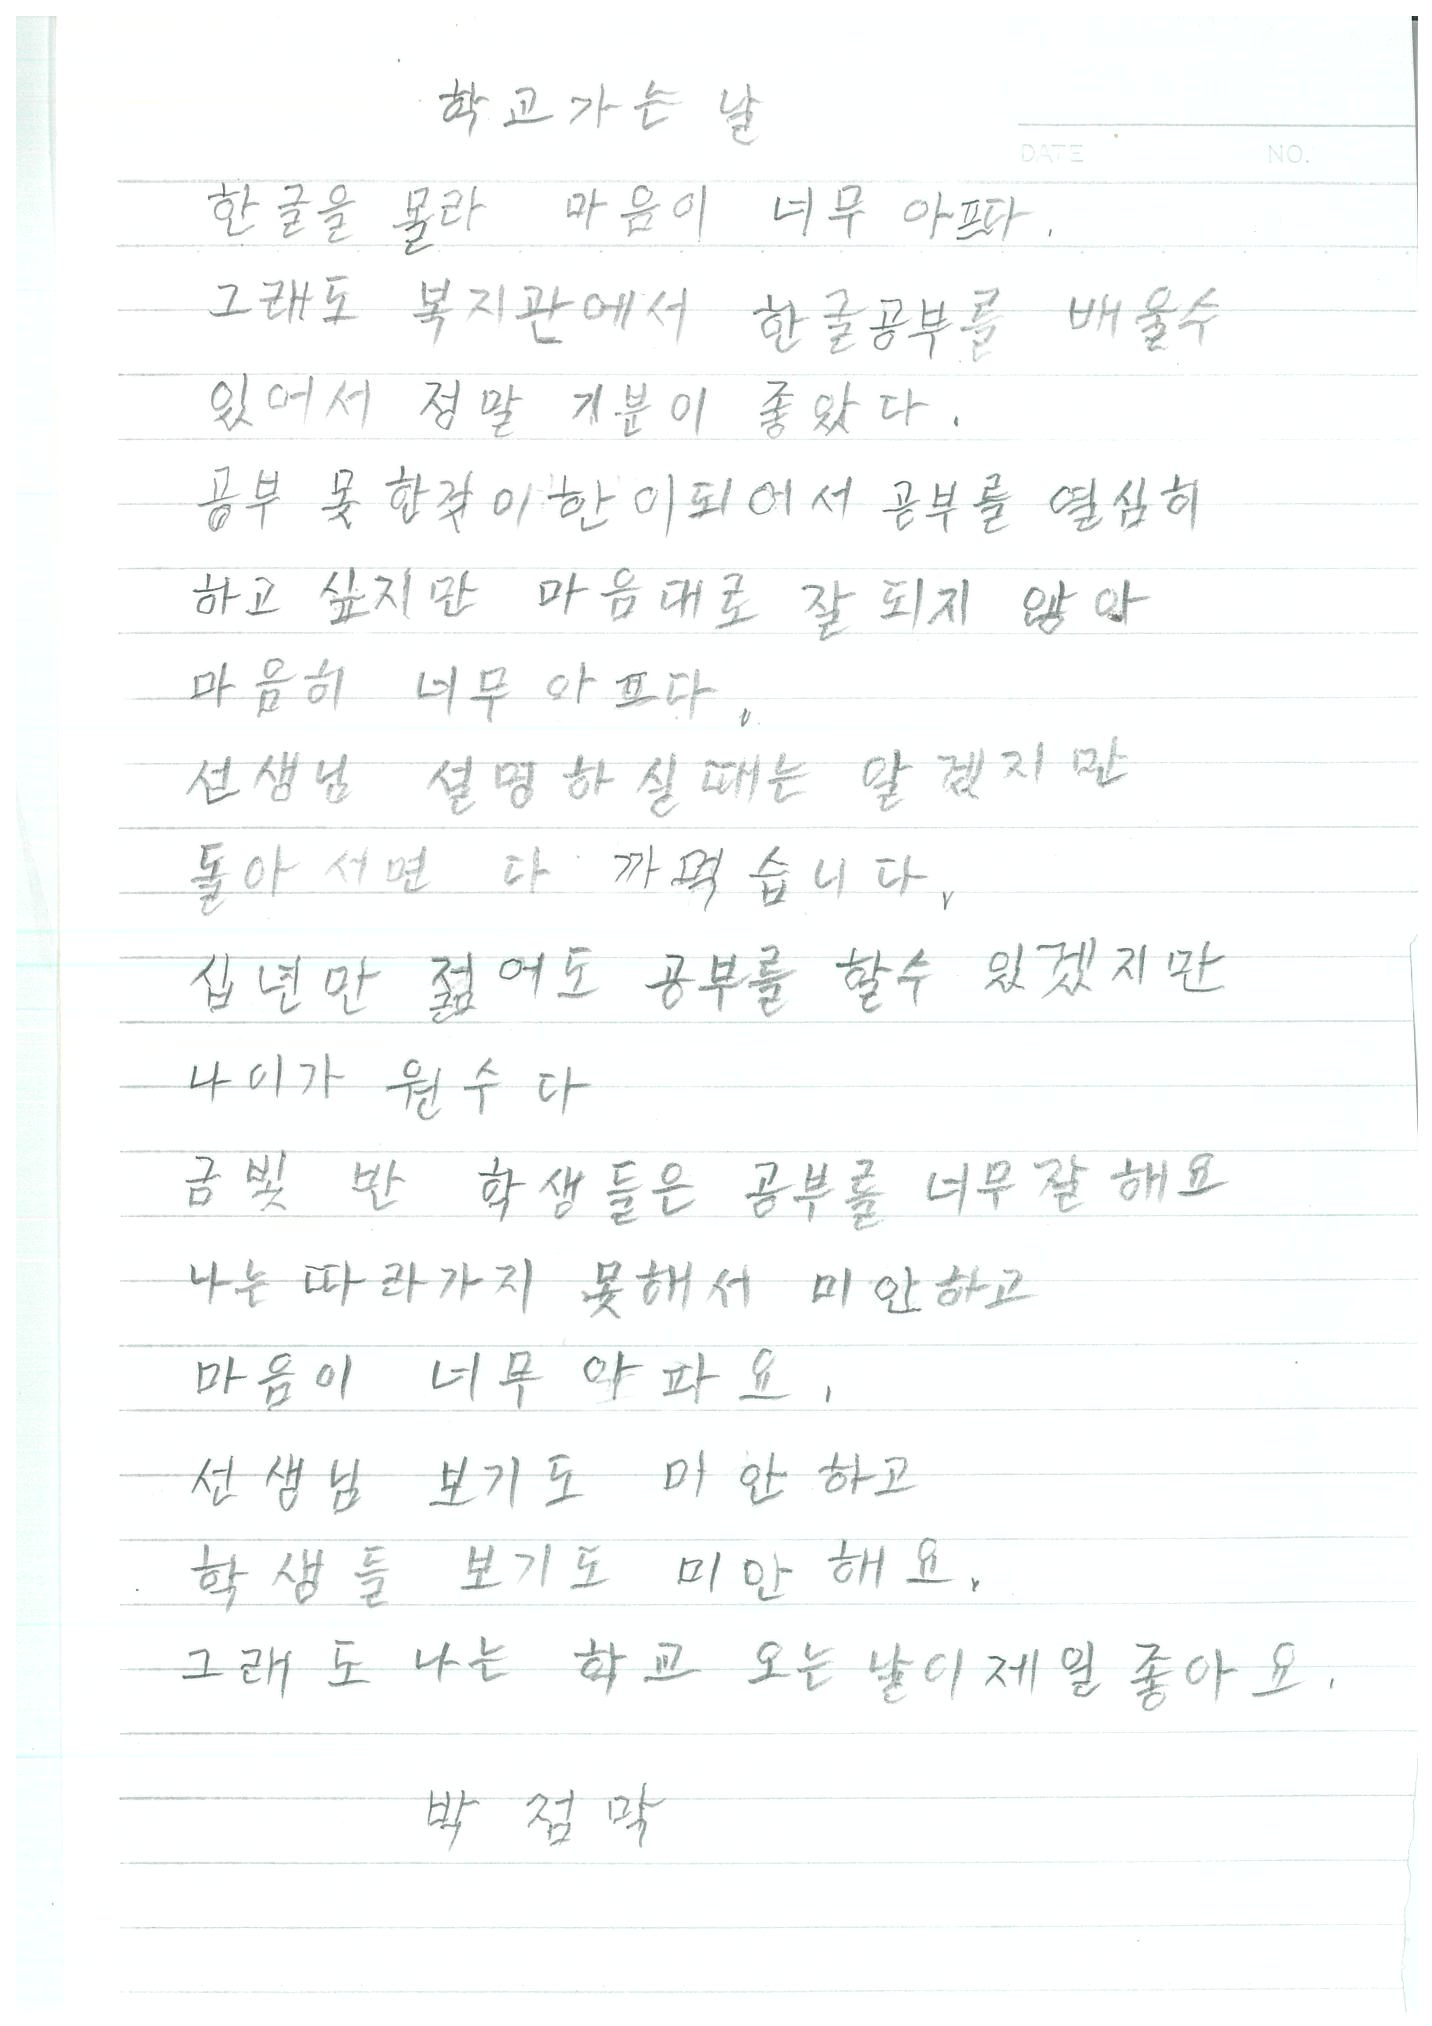 학교가는 날
DATE NO.
한글을 몰라 마음이 너무 아프다.
그래도 복지관에서 한글공부를 배울수
있어서 정말 기분이 좋았다.
공부 못 한것이 한이되어서 곧부를 열심히
하고 싶지만 마음대로 잘 되지 않아
마음히 너무 아프다.
선생님 설명하실때는 알겠지만
돌아서면 다 까먹습니다.
십년만 젊어도 공부를 할수 있겠지만
나이가 원수다
금빛 반 학생들은 공부를 너무잘해요
나는 따라가지 못해서 미안하고
마음이 너무 아파요.
선생님 보기도 마안하고
학생들 보기도 미안해요.
그래도 나는 학교 오는 날이 제일 좋아요.
박점막